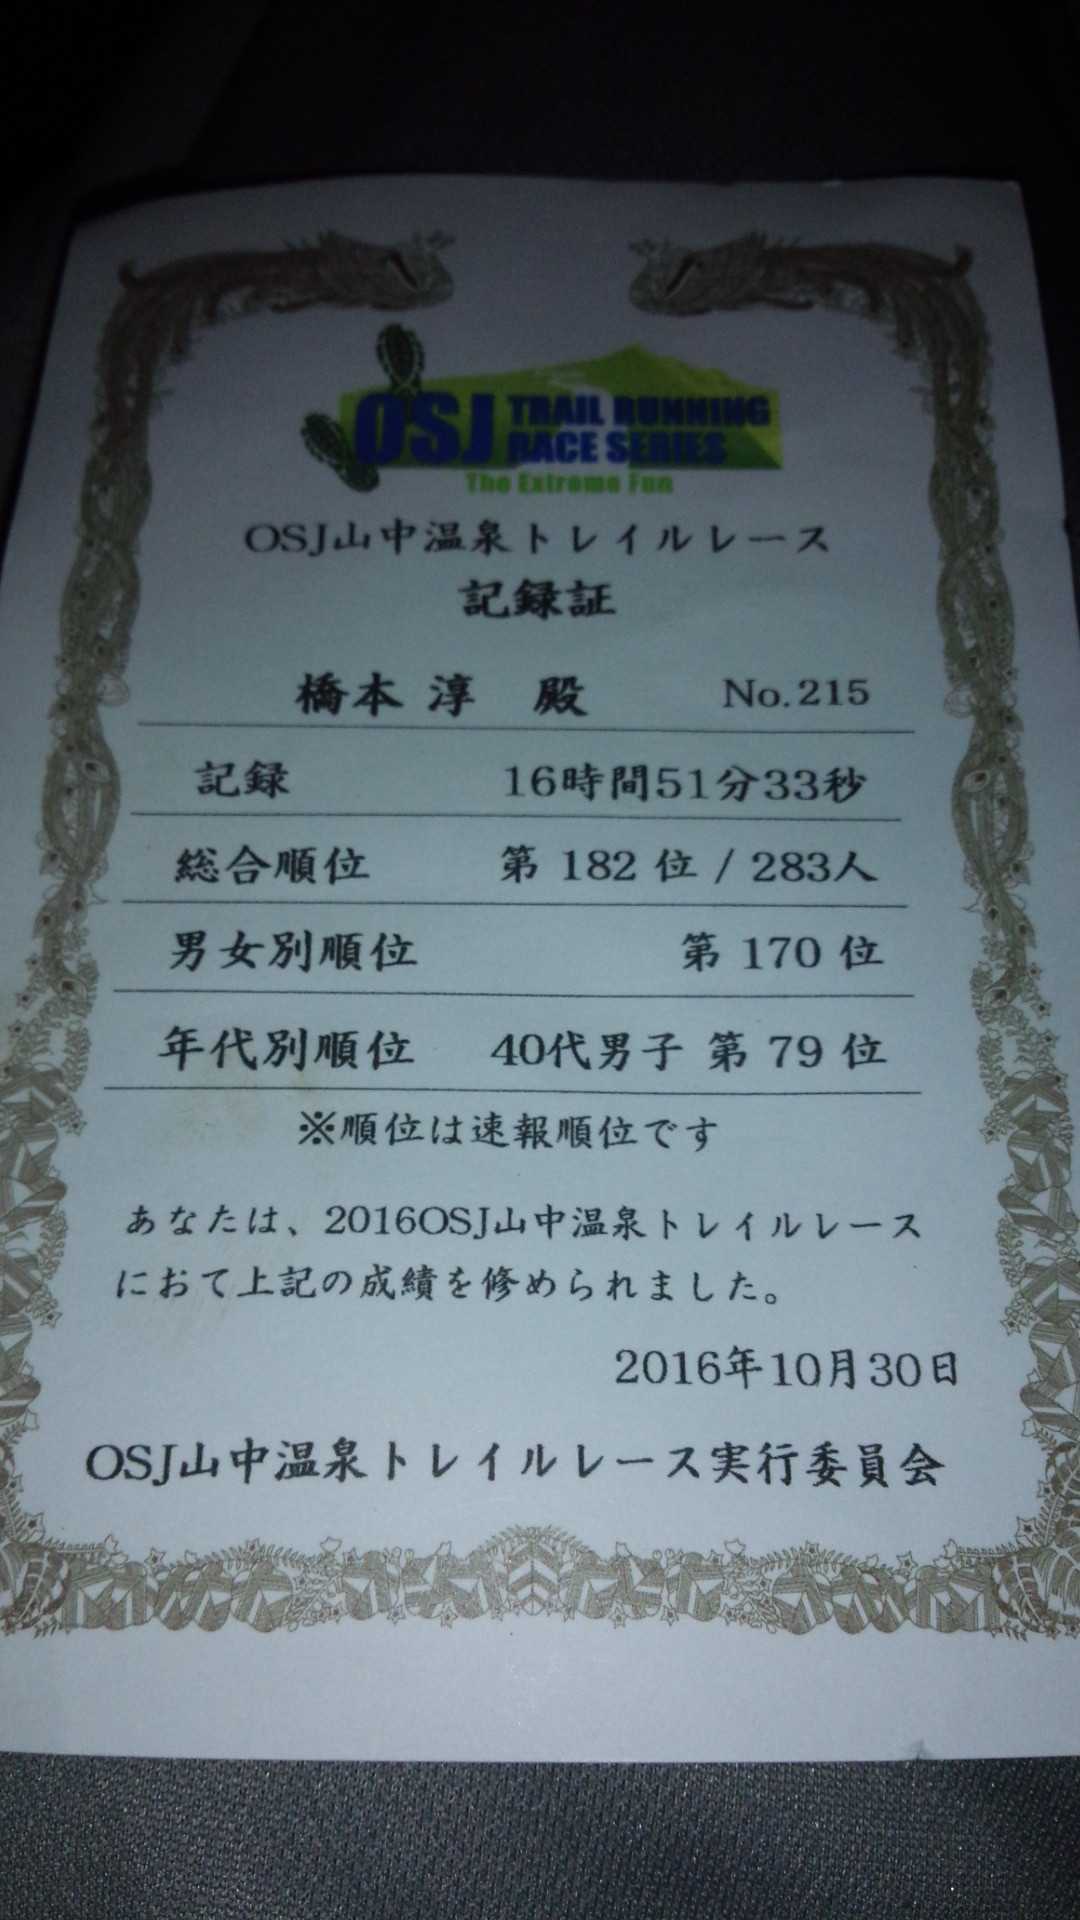 OSJ TRAIL RUNNING
RACE SERIES
The Extreme Fun
OSJ山中温泉トレイルレース
記録証
橋本 淳 殿 No.215
記録 16時間51分33秒
総合順位 第 182 位 / 283人
男女別順位 第 170 位
年代別順位 40代男子 第 79 位
※順位は速報順位です
あなたは、2016OSJ山中温泉トレイルレース
におて上記の成績を修められました。
2016年10月30日
OSJ山中温泉トレイルレース実行委員会